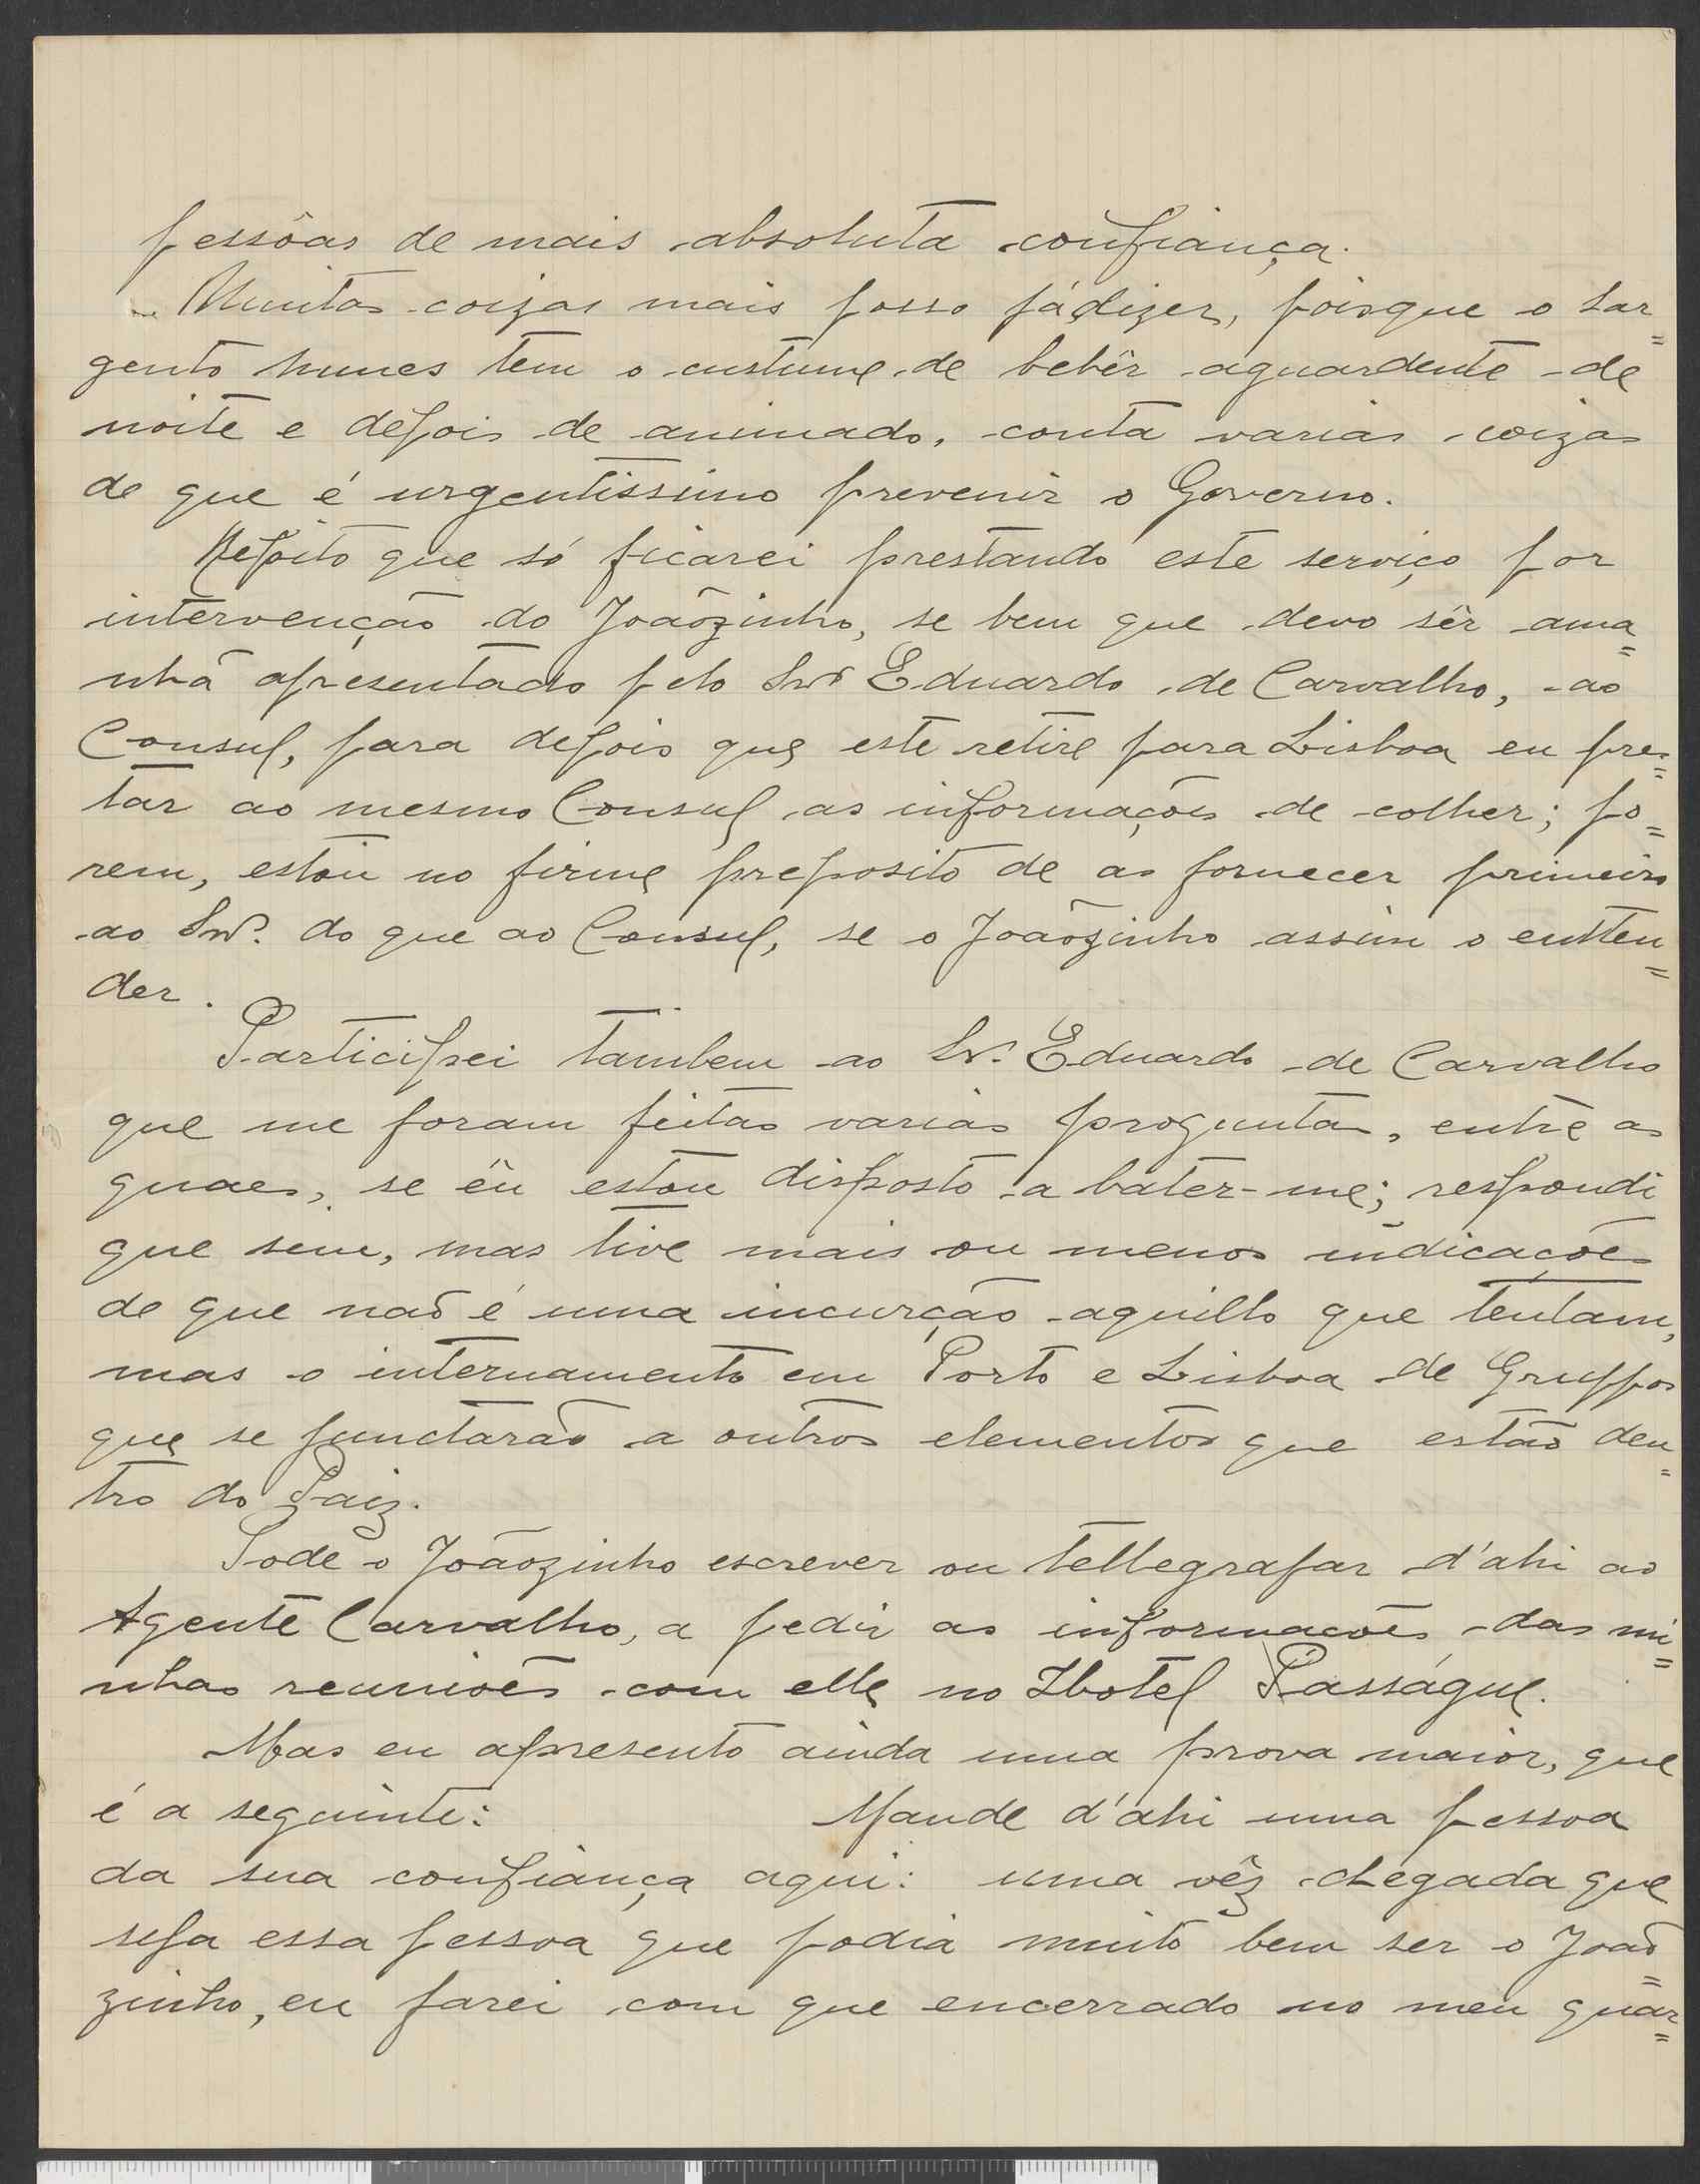 pessôas de mais absoluta confiança.
Muitas coizas mais posso já dizer, poisque o Sar=
gento Nunes tem o custume de bebêr aguardente de
noite e depois de animado, conta varias coizas
de que é urgentissimo prevenir o Governo.
Repito que só ficarei prestando este serviço por
intervenção do Joãozinho, se bem que devo sêr ama=
nhã apresentado pelo Snr Eduardo de Carvalho, ao
Consul, para depois que este retire para Lisboa eu pres=
tar ao mesmo Consul as informações de colher; po=
rem, estou no firme preposito de as fornecer primeiro
ao Snr. do que ao Consul, se o Joãozinho assim o entten=
der.
Participei tambem ao Sr. Eduardo de Carvalho
que me foram feitas varias proguntas, entre as
quaes, se êu estou disposto a bater-me; respondi
que sem, mas tive mais ou menos indicações
de que não é uma incurção aquillo que tentam,
mas o internamento em Porto e Lisboa de Gruppos
que se junctarão a outros elementos que estão den=
tro do Paiz.
Pode o Joãozinho escrever ou tellegrafar d'ahi ao
Agente Carvalho, a pedir as informacões das mi=
nhas reuniões com elle no Hotel Passágue.
Mas eu apresento ainda uma prova maior, que
é a seguinte: Mande d'ahi uma pessoa
da sua confiança aqui: uma vêz chegada que
seja essa pessoa que podia muito bem ser o João=
zinho, eu farei com que encerrado no meu quar=